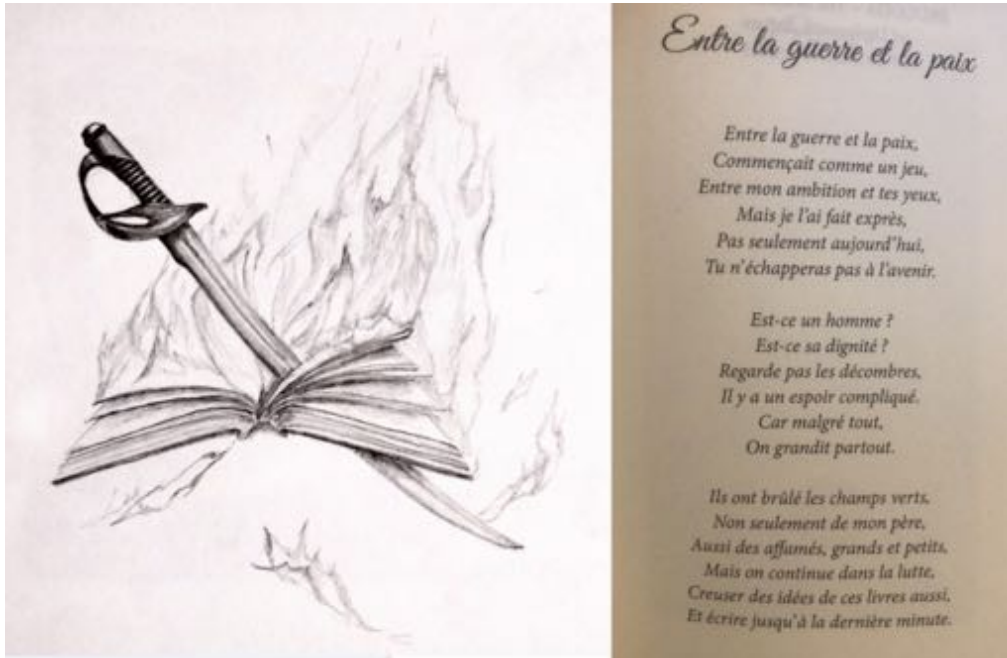 Entre la guerre et la paix
Entre la guerre et la paix,
Commençait comme un jeu,
Entre mon ambition et tes yeux,
Mais je l'ai fait exprès,
Pas seulement aujourd'hui,
Tu n'échapperas pas à l'avenir.
Est-ce un homme ?
Est-ce sa dignité ?
Regarde pas les décombres,
Il y a un espoir compliqué.
Car malgré tout,
On grandit partout.
Ils ont brûlé les champs verts,
Non seulement de mon père,
Aussi des affamés, grands et petits,
Mais on continue dans la lutte,
Creuser des idées de ces livres aussi,
Et écrire jusqu'à la dernière minute.